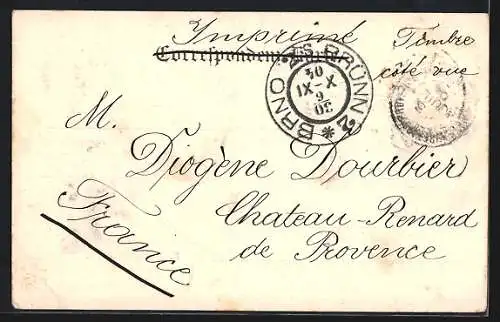 Imprimé
Correspondenz-Karte
Timbre
côté vue
BRNO 2 * BRÜNN 2 *
30 6 04
X-XI
M.
Diogène Dourbier
Chateau-Renard
de Provence
France